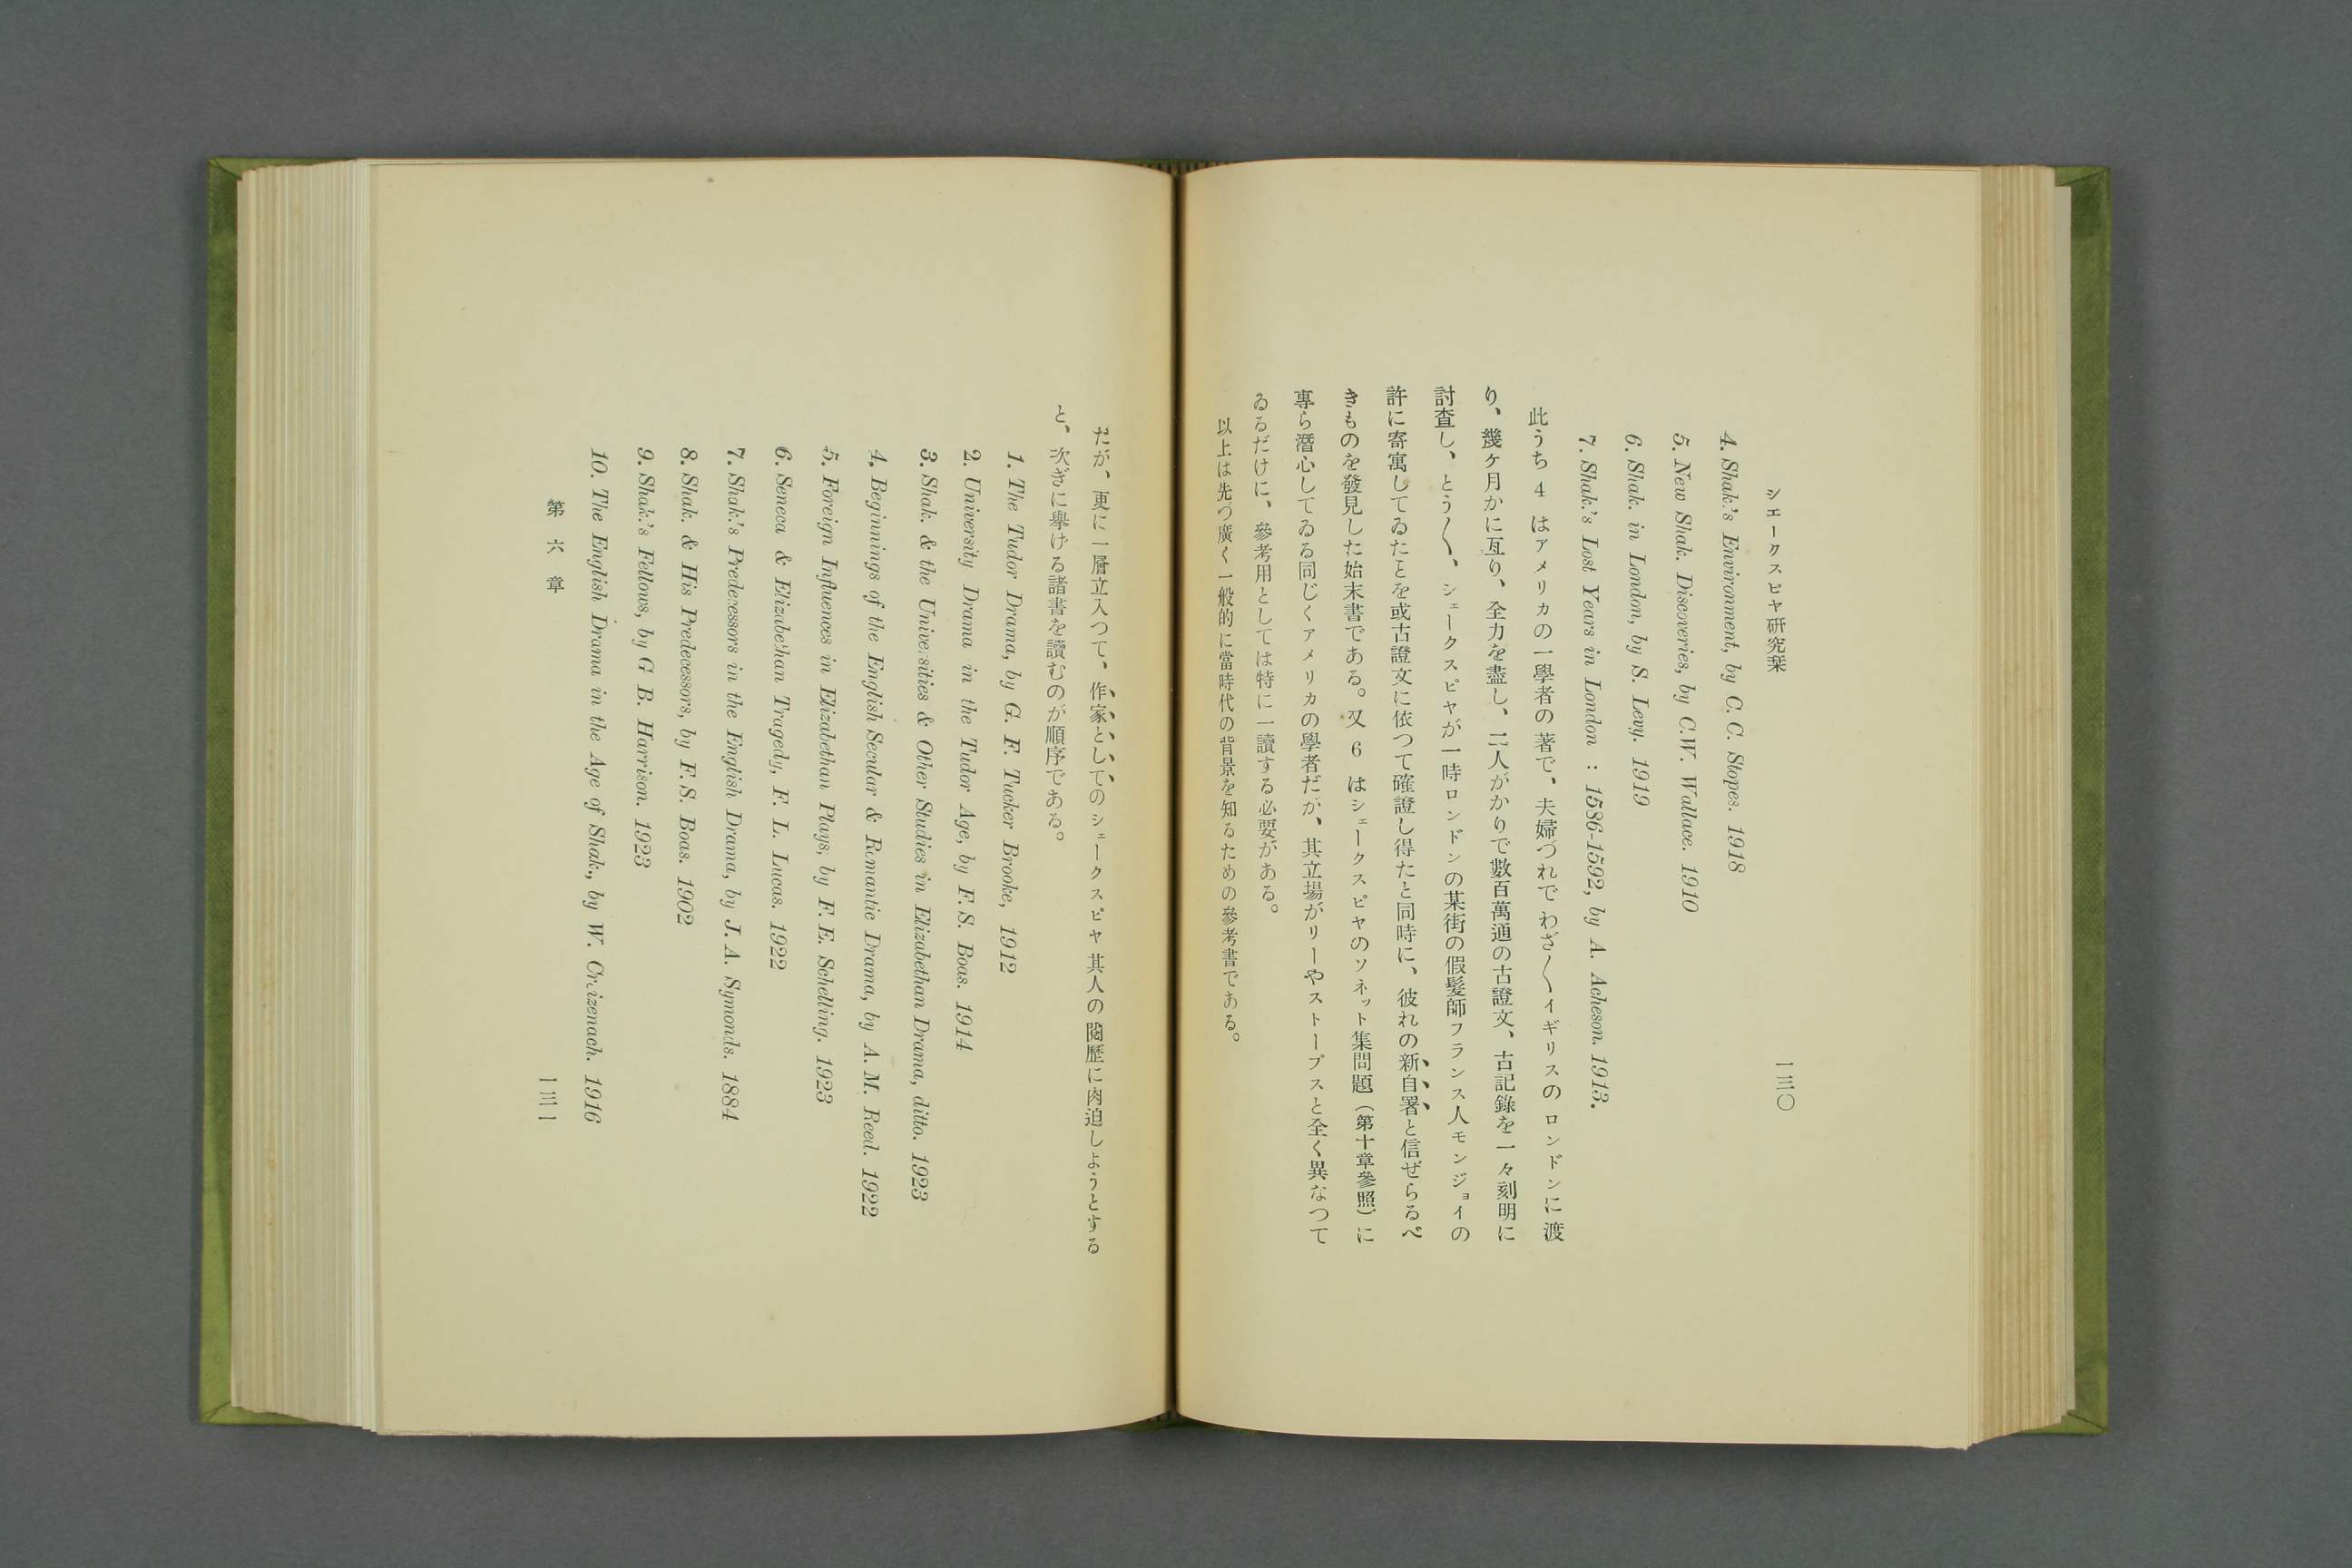 シエークスピヤ研究栞
一三〇
4. Shak.'s Environment, by C. C. Stopes. 1918
5. New Shak. Discoveries, by C.W. Wallace. 1910
6. Shak. in London, by S. Levy. 1919
7. Shak.'s Lost Years in London : 1586-1592, by A. Acheson. 1913.
此うち 4 はアメリカの一學者の著で、夫婦づれでわざ〱イギリスのロンドンに渡
り、幾ケ月かに亙り、全力を盡し、二人がかりで數百萬通の古證文、古記錄を一々刻明に
討査し、とう〱、シェークスピヤが一時ロンドンの某街の假髮師フランス人モンジョイの
許に寄寓してゐたことを或古證文に依つて確證し得たと同時に、彼れの新自署と信ぜらるべ
きものを發見した始末書である。又 6 はシェークスピヤのソネット集問題（第十章參照）に
專ら潛心してゐる同じくアメリカの學者だが、其立場がリーやストープスと全く異なつて
ゐるだけに、參考用としては特に一讀する必要がある。
以上は先づ廣く一般的に當時代の背景を知るための參考書である。
だが、更に一層立入つて、作家としてのシェークスピヤ其人の閲歷に肉迫しようとする
と、次ぎに擧げる諸書を讀むのが順序である。
1. The Tudor Drama, by G. F. Tucker Brooke, 1912
2. University Drama in the Tudor Age, by F. S. Boas. 1914
3. Shak. & the Universities & Other Studies in Elizabethan Drama, ditto. 1923
4. Beginnings of the English Secular & Romantic Drama, by A. M. Reed. 1922
5. Foreign Influences in Elizabethan Plays, by F. E. Schelling. 1923
6. Seneca & Elizabethan Tragedy, F. L. Lucas. 1922
7. Shak.'s Predecessors in the English Drama, by J. A. Symonds. 1884
8. Shak. & His Predecessors, by F. S. Boas. 1902
9. Shak.'s Fellows, by G B. Harrison. 1923
10. The English Drama in the Age of Shak., by W. Creizenach. 1916
第六章
一三一